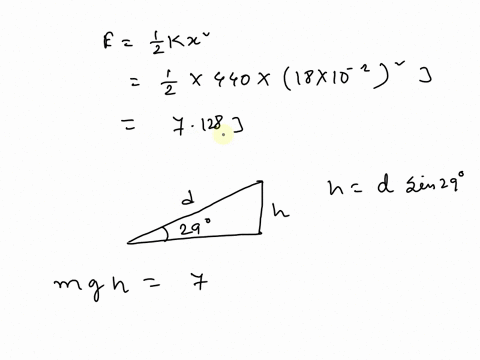 E = ½ K x²
= ½ × 440 × (18 × 10⁻²)² J
= 7.128 J
d
29°
h
h = d Sin 29°
m g h = 7